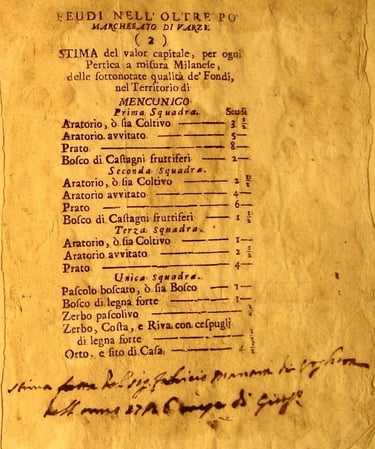 FEUDI NELL'OLTRE PO'
MARCHESATO DI VARZI.
( 2 )
STIMA del valor capitale, per ogni
Pertica a misura Milanese,
delle sottonotate qualità de' Fondi,
nel Territorio di
MENCUNICO
Prima Squadra. Scudi
Aratorio, ò sia Coltivo 3 1/2
Aratorio avvitato 5
Prato 8
Bosco di Castagni fruttiferi 2
Seconda Squadra.
Aratorio, ò sia Coltivo 2
Aratorio avvitato 4
Prato 6
Bosco di Castagni fruttiferi 1 1/2
Terza Squadra.
Aratorio, ò sia Coltivo 1
Aratorio avvitato 2
Prato 4
Unica Squadra.
Pascolo boscato, ò sia Bosco 1
Bosco di legna forte 1
Zerbo pascolivo
Zerbo, Costa, e Riva con cespugli
di legna forte
Orto, e sito di Casa. 4
stima fatta
nell anno di